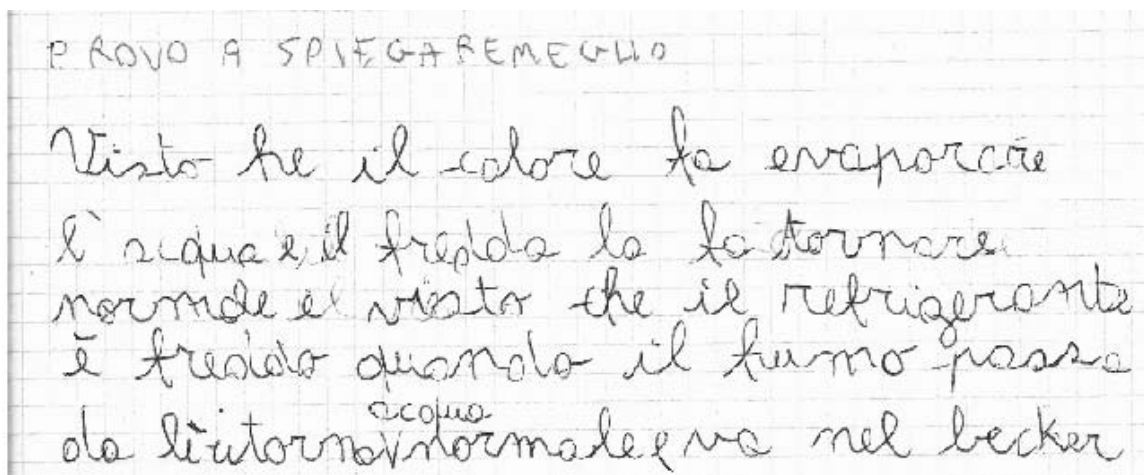 PROVO A SPIEGARE MEGLIO
Visto he il calore fa evaporare
l'acqua e il freddo la fa tornare
normale e visto che il refrigerante
è freddo quando il fumo passa
da lì ritorna acqua normale e va nel becker